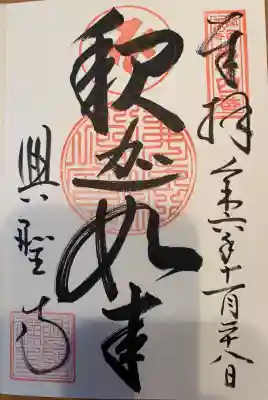 奉拝 令和六年十一月二十八日
釈迦如来
興聖寺